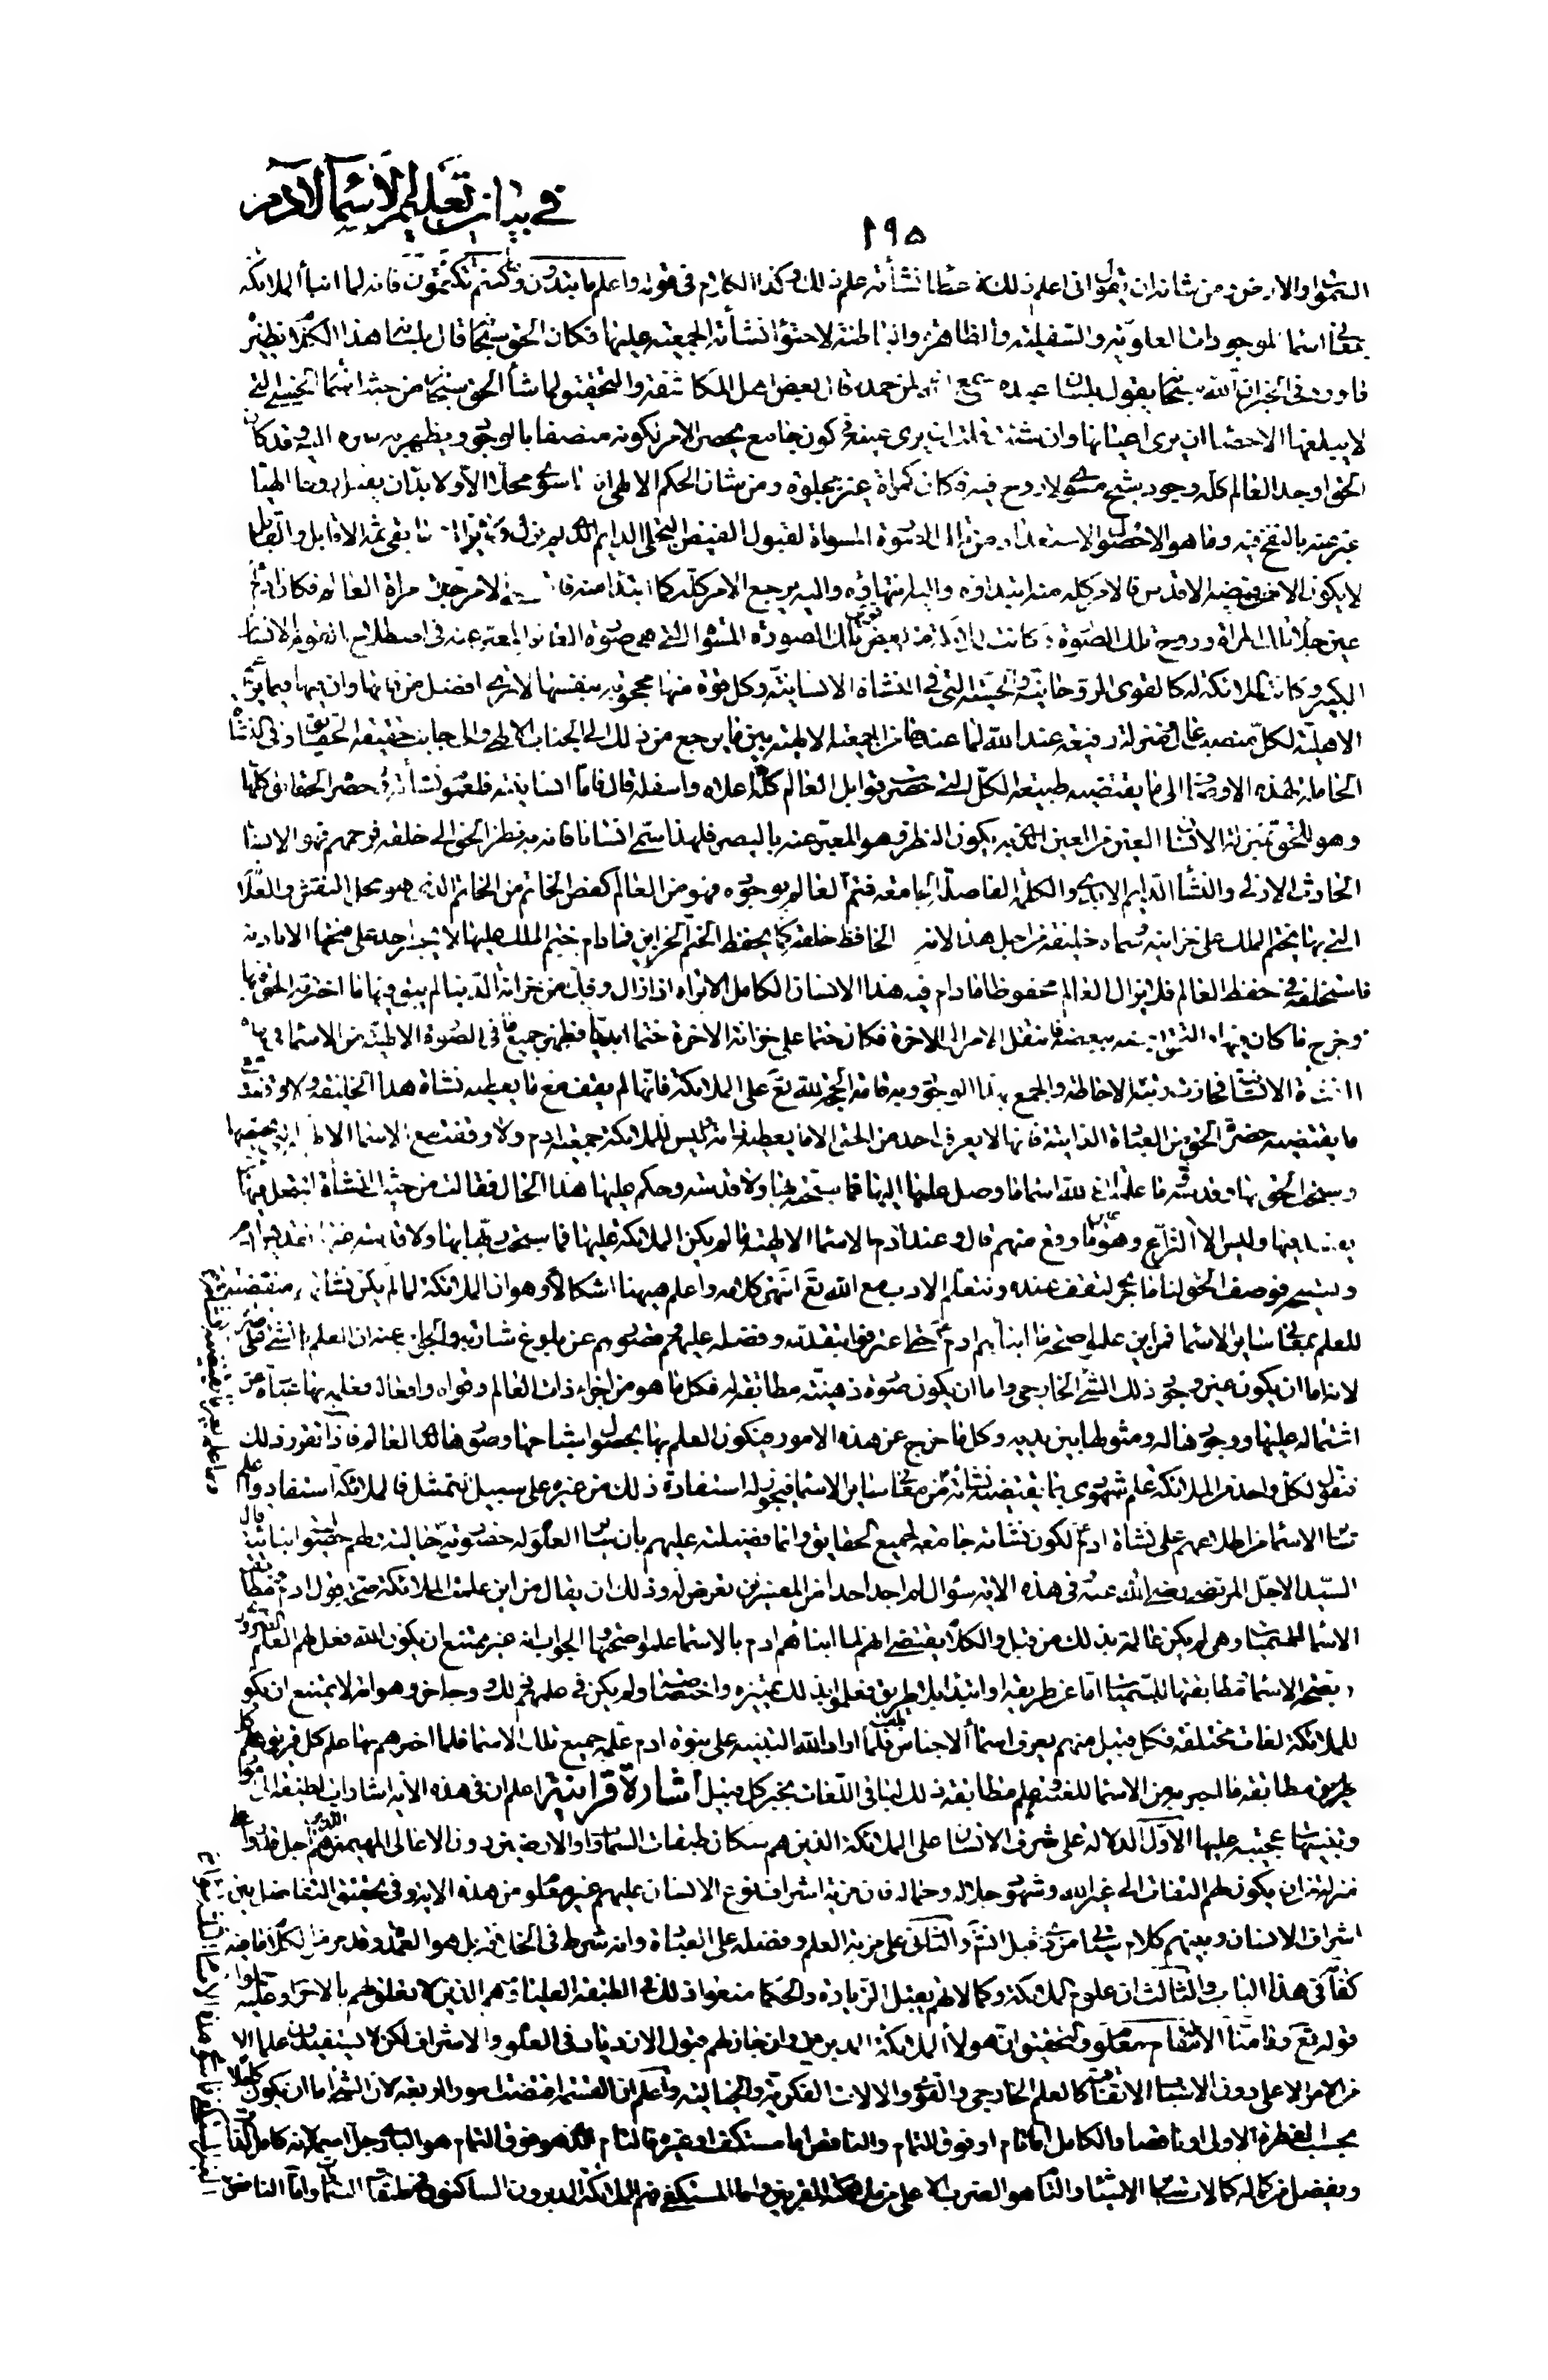 في بيان تعليم الأسماء لآدم
١٩٥
السموات والارض من شانه ان يقول انى اعلم ذلك عطا نشأته علم ذلك وكذا الكلام فى قوله واعلم ما تبدون وما كنتم تكتمون فانه لما انبأ الملائكة
بمعانى اسماء الموجودات العلوية والسفلية والظاهرة والباطنة لاحتواء نشأته الجمعية عليها فكان الحق سبحانه قال بلسانه هذا الكلام نظير
ما ورد فى الخبر ان الله سبحانه يقول بلسان عبده سمع الله لمن حمده قال بعض اهل المكاشفة والتحقيق لما شاء الحق سبحانه من حيث اسمائه الحسنى التى
لا يبلغها الاحصاء ان يرى اعيانها وان شئت قلت ان يرى عينه فى كون جامع يحصر الامر لكونه متصفا بالوجود ويظهر به سره اليه وقد كان
الحق اوجد العالم كله وجود شبح مسوى لا روح فيه فكان كمرآة غير مجلوة ومن شان الحكم الالهى انه ما سوى محلا الا ولابد ان يقبل روحا الهيا
عبر عنه بالنفخ فيه وما هو الا حصول الاستعداد من تلك الصورة المسواة لقبول الفيض التجلى الدايم الذى لم يزل ولا يزال وما بقى ثمة الا قابل والقابل
لا يكون الا من فيضه الاقدس فالامر كله منه ابتداؤه واليه انتهاؤه واليه يرجع الامر كله كما ابتدأ منه فاقتضى الامر جلاء مرآة العالم فكان آدم
عين جلاء تلك المرآة وروح تلك الصورة وكانت الملائكة من بعض قوى تلك الصورة التى هى صورة العالم المعبر عنه فى اصطلاح القوم بالانسان
الكبير وكانت الملائكة له كالقوى الروحانية والحسية التى فى النشأة الانسانية وكل قوة منها محجوبة بنفسها لا ترى افضل من ذاتها وان فيها فيما تزعم
الاهلية لكل منصب عال ومنزلة رفيعة عند الله لما عندها من الجمعية الالهية بين ما يرجع من ذلك الى الجناب الالهى والى جانب حقيقة الحقايق وفى النشأة
الحاملة لهذه الاوصاف الى ما يقتضيه طبيعة الكل التى حصرت قوابل العالم كله اعلاه واسفله قال فاما انسانيته فلعموم نشأته وحصره الحقايق كلها
وهو للحق بمنزلة الانسان العين من العين الذى به يكون النظر وهو المعبر عنه بالبصر فلهذا سمى انسانا فانه به نظر الحق الى خلقه فرحمهم فهو الانسان
الحادث الازلى والنشأ الدايم الابدى والكلمة الفاصلة الجامعة فتم العالم بوجوده فهو من العالم كفص الخاتم من الخاتم الذى هو محل النقش والعلامة
التى بها يختم الملك على خزاينه وسماه خليفة من اجل هذا لانه الحافظ خلقه كما يحفظ الختم الخزاين فمادام ختم الملك عليها لا يجسر احد على فتحها الا باذنه
فاستخلفه فى حفظ العالم فلا يزال العالم محفوظا مادام فيه هذا الانسان الكامل الا تراه اذا زال وفك من خزانة الدنيا لم يبق فيها ما اختزنه الحق فيها
وخرج ما كان فيها والتحق بعضه ببعضه وانتقل الامر الى الآخرة فكان ختما على خزانة الآخرة ختما ابديا فظهر جميع ما فى الصورة الالهية من الاسماء فى هذه
النشأة الانسانية فحازت رتبة الاحاطة والجمع بهذا الوجود وبه قامت الحجة لله تع على الملائكة فانها لم يقف مع ما يعطيه نشأة هذا الخليفة ولا وقفت مع
ما يقتضيه حضرة الحق من العبادة الذاتية فانها لا يعرف احد من الحق الا ما يعطيه ذاته وليس للملائكة جمعية آدم ولا وقفت مع الاسماء الالهية التى تخصها
وسبحت الحق بها وقدسته وما علمت ان لله اسماء ما وصل علمها اليها فما سبحته بها ولا قدسته وحكم عليها هذا الحال فقالت من حيث النشأة اتجعل فيها
من يفسد فيها وليس الا النزاع وهو عين ما وقع منهم قال وعند آدم الاسماء الالهية ما لم يكن الملائكة عليها فما سبحت ربها بها ولا قدسته عنها
فوصف الحق لنا ما جرى لنقف عنده ونتعلم الادب مع الله تع انتهى كلامه واعلم ههنا اشكالا وهو ان الملائكة لما لم يكن نشأتهم مقتضية
للعلم بمعانى ساير الاسماء فمن اين علموا صحة ما انبأهم آدم حتى اعترفوا بتقدمه وفضله عليهم وقصورهم عن بلوغ شأوه والجواب عنه ان العلم بالشئ
لانه اما ان يكون عين وجود ذلك الشئ الخارجى واما ان يكون صورة ذهنية مطابقة له فكل ما هو من اجزاء ذات العالم وقواه وافعاله فعلمه بها عبارة عن
اشتماله عليها ووجودها له ومثولها بين يديه وكل ما خرج عن هذه الامور فيكون العلم بها بحصول اشباحها وصورها فى ذلك العالم فاذا تقرر ذلك
فنقول لكل واحد من الملائكة علم شهودى بما يقتضيه نشأته من معانى ساير الاسماء فيجوز له استفادة ذلك من غيره على سبيل التمثل فالملائكة استفادوا علم
سائر الاسماء من اطلاعهم على نشأة آدم لكون نشأته جامعة لجميع الحقايق وانما فضيلته عليهم بان ساير العلوم له حضورية وللملائكة قال
السيد الاجل المرتضى رضى الله عنه فى هذه الآية سؤال لم اجد احدا من المفسرين تعرض له وذلك ان يقال من اين علمت الملائكة صحة قول آدم ومطابقة
الاسماء للمسميات وهى لم يكن عالمة بذلك من قبل والكلام يقتضى انهم لما انبأهم آدم بالاسماء علموا صحتها والجواب انه غير ممتنع ان يكون الله فعل لهم العلم الضرورى
بصحة الاسماء ومطابقتها للمسميات اما عن طريق او ابتداء بلا طريق فعلموا بذلك تمييزه واختصاصه ولم يكن فى علمهم بذلك وجه آخر وهو انه لا يمتنع ان يكون
للملائكة لغات مختلفة فكل قبيل منهم يعرف اسماء الاجناس فى لغته فلما اراد الله التنبيه على نبوة آدم علمه جميع تلك الاسماء فلما اخبرهم بها علم كل فريق
مطابقة ما اخبر به من الاسماء للغته وعلم مطابقة ذلك لباقى اللغات بخبر كل قبيل اشارة قرآنية اعلم ان فى هذه الآية اشارات لطيفة
وتنبيهات عجيبة عليها الاول الدلالة على شرف الانسان على الملائكة الذين هم سكان طبقات السماوات والارضين دون الاعالى المهيمين الذين هم اجل قدرا
منزلة من ان يكون لهم التفات الى غير الله وشهود جلاله وجماله فان مزية اشراف نوع الانسان عليهم غير معلوم من هذه الآية وفى تحقيق التفاضل بين
اشراف الانسان وبينهم كلام سيأتى من ذى قبل انشاء الله والثانى على مزية العلم وفضله على العبادة وانه شرط فى الخلافة بل هو العمدة وقد مر من الكلام ما فيه
كفاية فى هذا الباب والثالث ان علوم الملائكة وكمالاتهم يقبل الزيادة والحكماء منعوا ذلك فى الطبقة العليا وهم الذين لا تعلق لهم بالاجرام وعليه
قوله تع وما منا الا له مقام معلوم والتحقيق ان هؤلاء الملائكة المدبرين وان جاز لهم قبول الازدياد فى العلوم والاشراف لكن لا يستفيدون علما الا
من الامر الاعلى دون الاسباب الاتفاقية كالعلم الخارجى والقوى والآلات الفكرية والخيالية واعلم ان القسمة اقتضت امورا اربعة لان الشئ اما ان يكون كاملا
بحسب الفطرة الاولى او ناقصا والكامل اما تام او فوق التمام والناقص اما مستكف او غيره فالتام الذى هو فوق التمام هو البارى جل اسمه لانه كامل الذات
ويفضل من كماله كمالات ساير الاشياء والتام هو الضرب الاعلى من ملائكة المقربين واما المستكفى فهم الملائكة المدبرون الساكنون فى طبقات السماوات واما الناقص